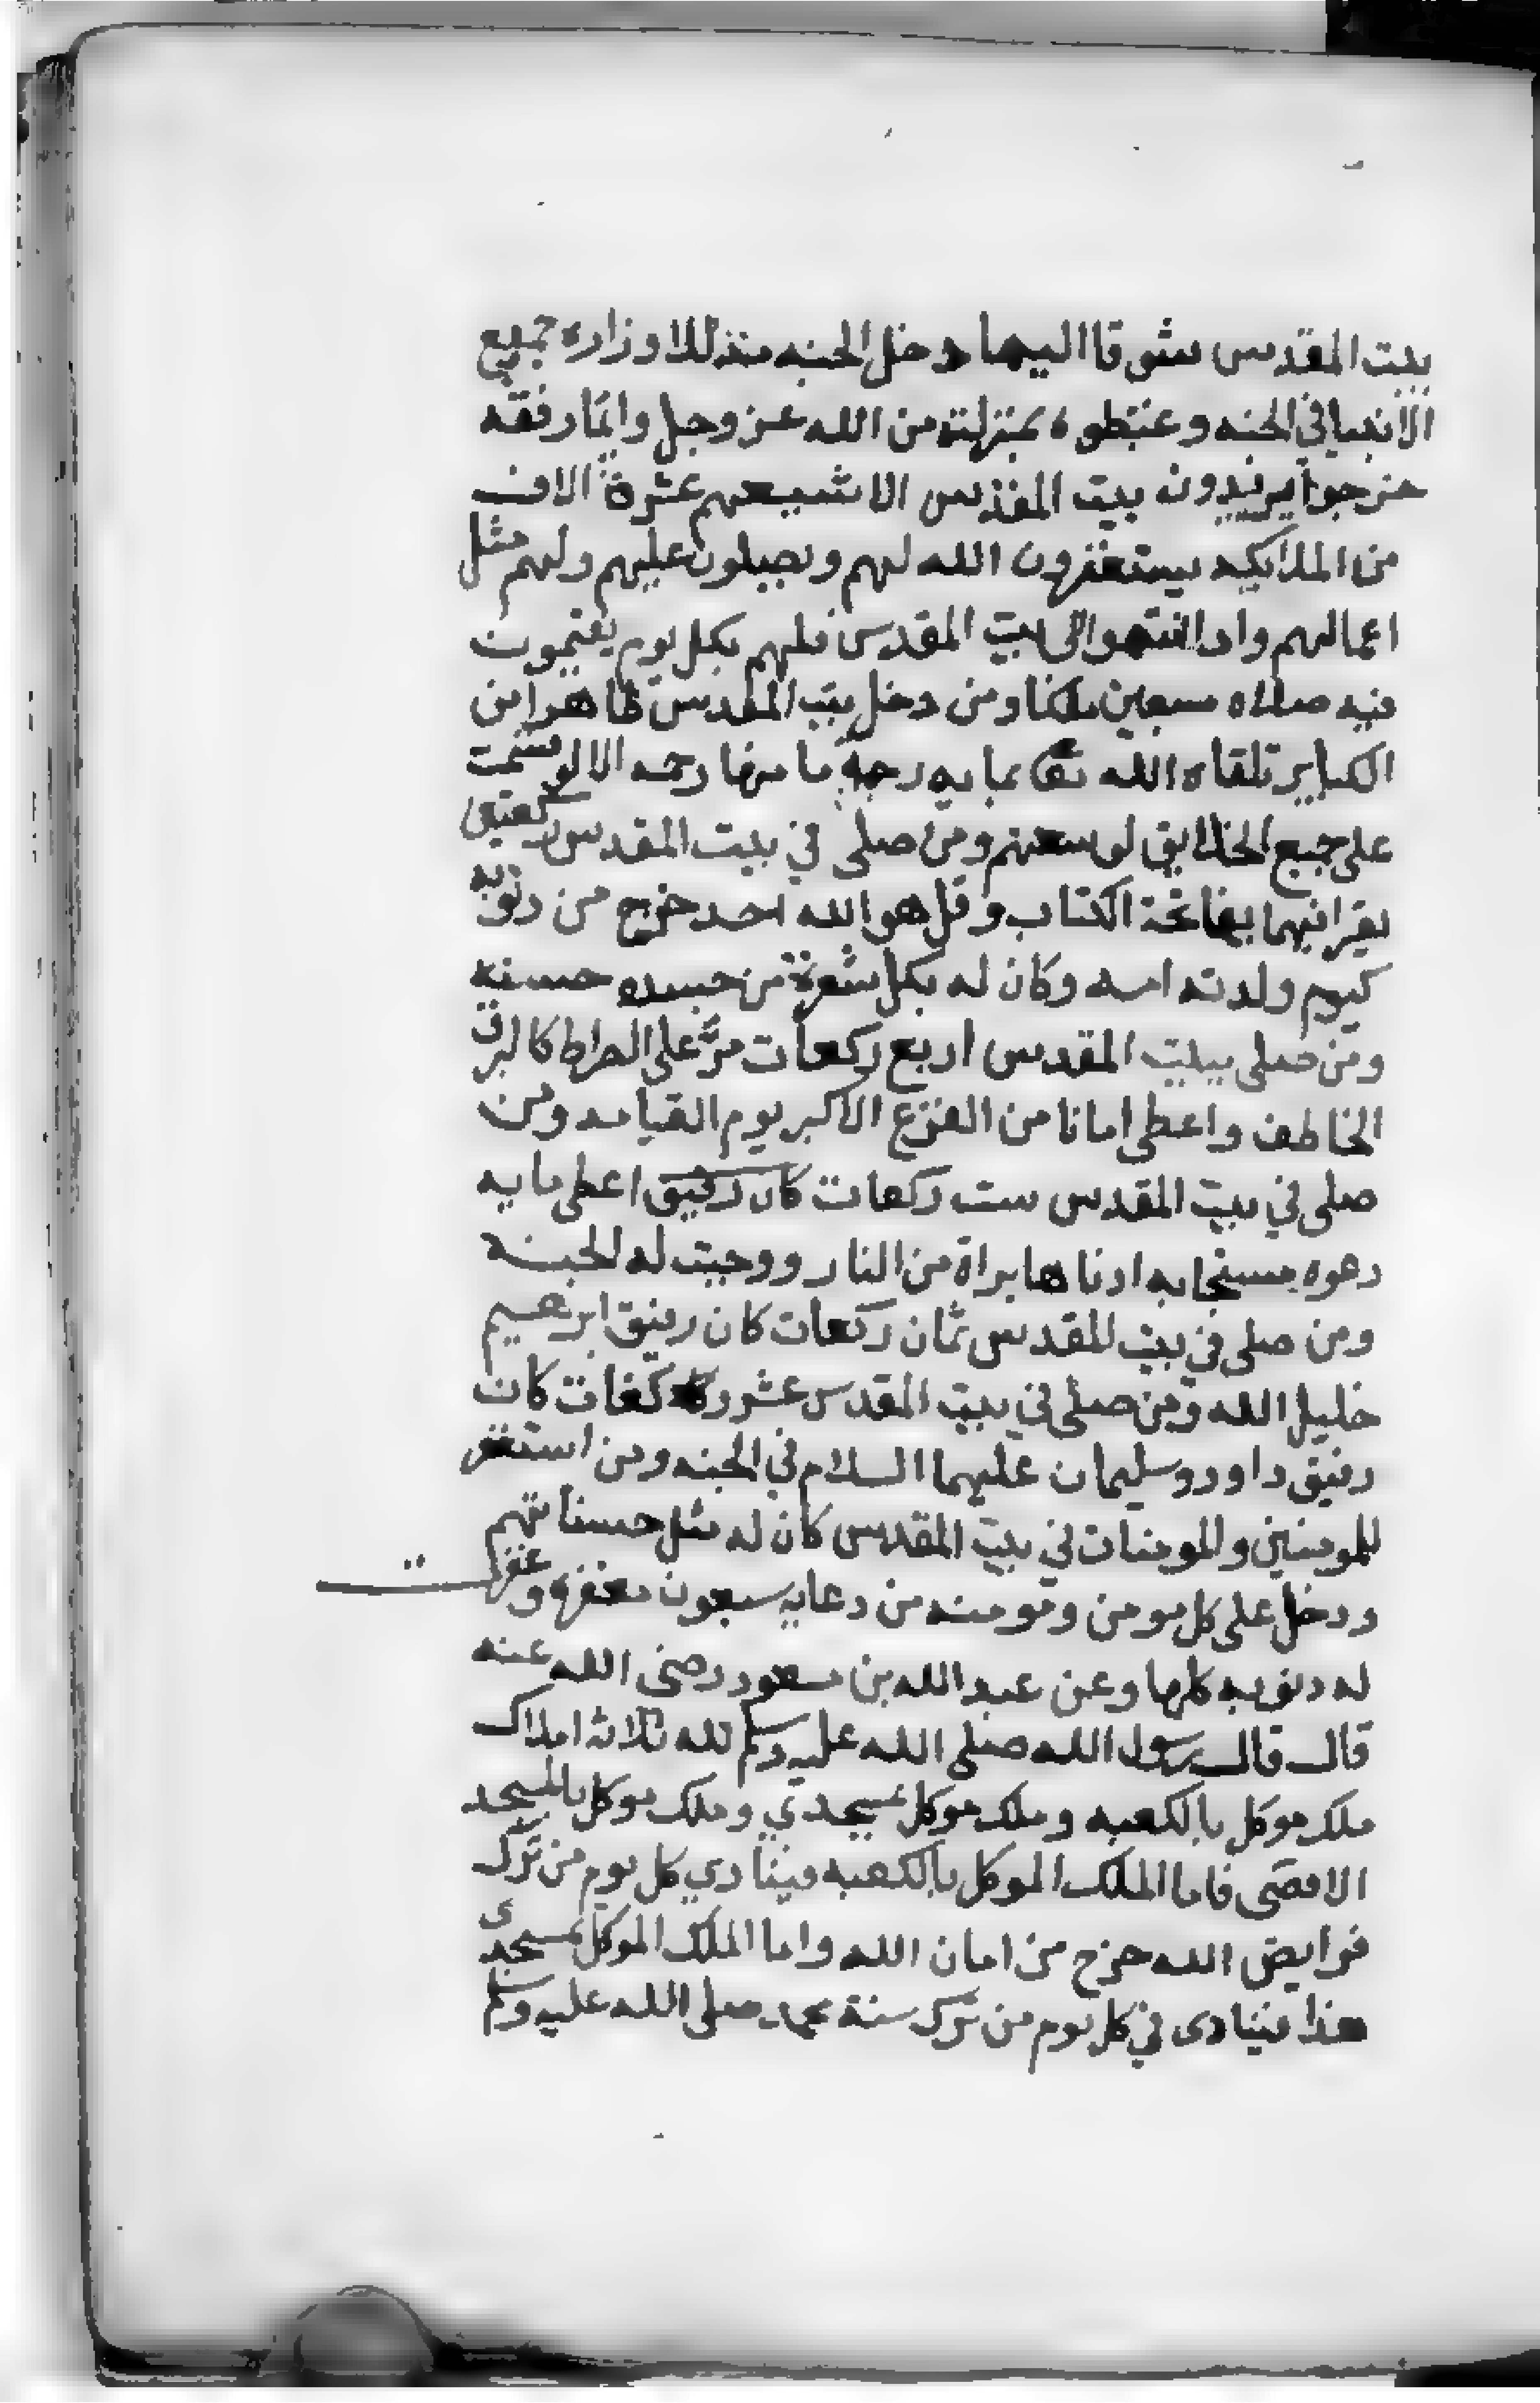 بيت المقدس شوقا اليها دخل الجنه متدللا وزاره جميع
الانبيا في الجنه وغبطوه بمنزلته من الله عز وجل وايما رفقه
خرجوا يريدون بيت المقدس الا شيعهم عشرة الاف
من الملايكه يستغفرون الله لهم ويصلون عليهم ولهم مثل
اعمالهم واذا انتهوا الى بيت المقدس فلهم بكل يوم يقيمون
فيه صلاه سبعين ملكا ومن دخل بيت المقدس طاهرا من
الكباير تلقاه الله تعا بمايه رحمة ما منها رحمه الا لو قسمت
على جميع الخلايق لوسعتهم ومن صلى في بيت المقدس ركعتين
يقرا فيهما بفاتحة الكتاب وقل هو الله احد خرج من ذنوبه
كيوم ولدته امه وكان له بكل شعرة من جسده حسنه
ومن صلى ببيت المقدس اربع ركعات مرّ على الصراط كالبرق
الخاطف واعطى امانا من الفزع الاكبر يوم القيامه ومن
صلى في بيت المقدس ست ركعات كان رفيق اعطى مايه
دعوه مستجابه ادناها براة من النار ووجبت له الجنه
ومن صلى في بيت المقدس ثمان ركعات كان رفيق ابرهيم
خليل الله ومن صلى في بيت المقدس عشر ركعات كان
رفيق داوود وسليمان عليهما السلام في الجنه ومن استغفر
للمومنين والمومنات في بيت المقدس كان له مثل حسناتهم
ودخل على كل مومن ومومنه من دعايه سبعون مغفره وغفرت
له ذنوبه كلها وعن عبد الله بن مسعود رضى الله عنه
قال قال رسول الله صلى الله عليه وسلم لله ثلاثه املاك
ملك موكل بالكعبه وملك موكل بمسجدي وملك موكل بالمسجد
الاقصى فاما الملك الموكل بالكعبه فينادي كل يوم من ترك
فرايض الله خرج من امان الله واما الملك الموكل بمسجدى
هذا فينادى في كل يوم من ترك سنة محمد صلى الله عليه وسلم